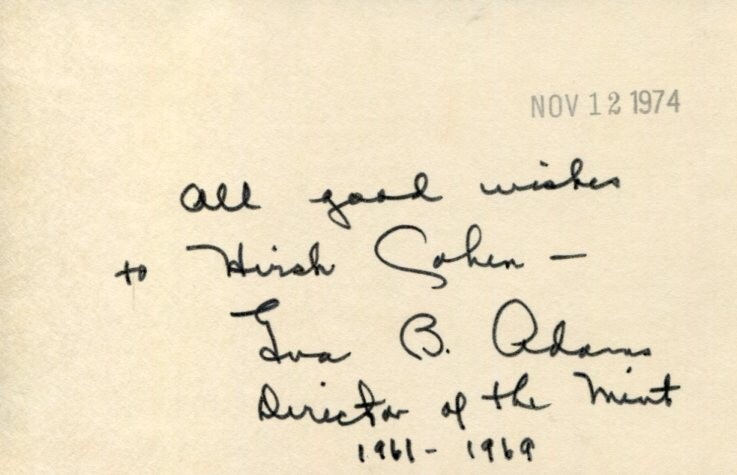 NOV 12 1974
All good wishes
to Hirsh Cohen —
Eva B. Adams
Director of the Mint
1961 - 1969